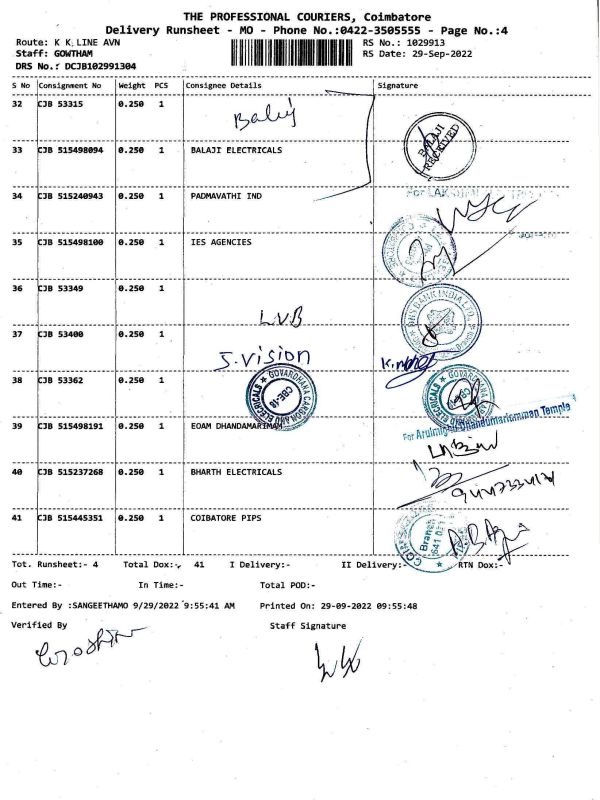 THE PROFESSIONAL COURIERS, Coimbatore
Delivery Runsheet - MO - Phone No.:0422-3505555 - Page No.:4
Route: K K LINE AVN
RS No.: 1029913
Staff: GOWTHAM
RS Date: 29-Sep-2022
DRS No.: DCJB102991304
S No Consignment No Weight PCS Consignee Details Signature
32 CJB 53315 0.250 1 Balaj
BALAJI RECEIVED
33 CJB 515498094 0.250 1 BALAJI ELECTRICALS
34 CJB 515240943 0.250 1 PADMAVATHI IND
35 CJB 515498100 0.250 1 IES AGENCIES
36 CJB 53349 0.250 1
DBS BANK INDIA LTD.
L.V.B
37 CJB 53400 0.250 1
S.vision
38 CJB 53362 0.250 1
GOVARDHANA GARMAND ELECTRICALS
CBE-18
39 CJB 515498191 0.250 1 EOAM DHANDAMARIMAN
For Arulmigu Dhandumariamman Temple
40 CJB 515237268 0.250 1 BHARTH ELECTRICALS
41 CJB 515445351 0.250 1 COIBATORE PIPS
Branch
Tot. Runsheet:- 4 Total Dox:- 41 I Delivery:- II Delivery:- RTN Dox:-
Out Time:- In Time:- Total POD:-
Entered By :SANGEETHAMO 9/29/2022 9:55:41 AM Printed On: 29-09-2022 09:55:48
Verified By Staff Signature